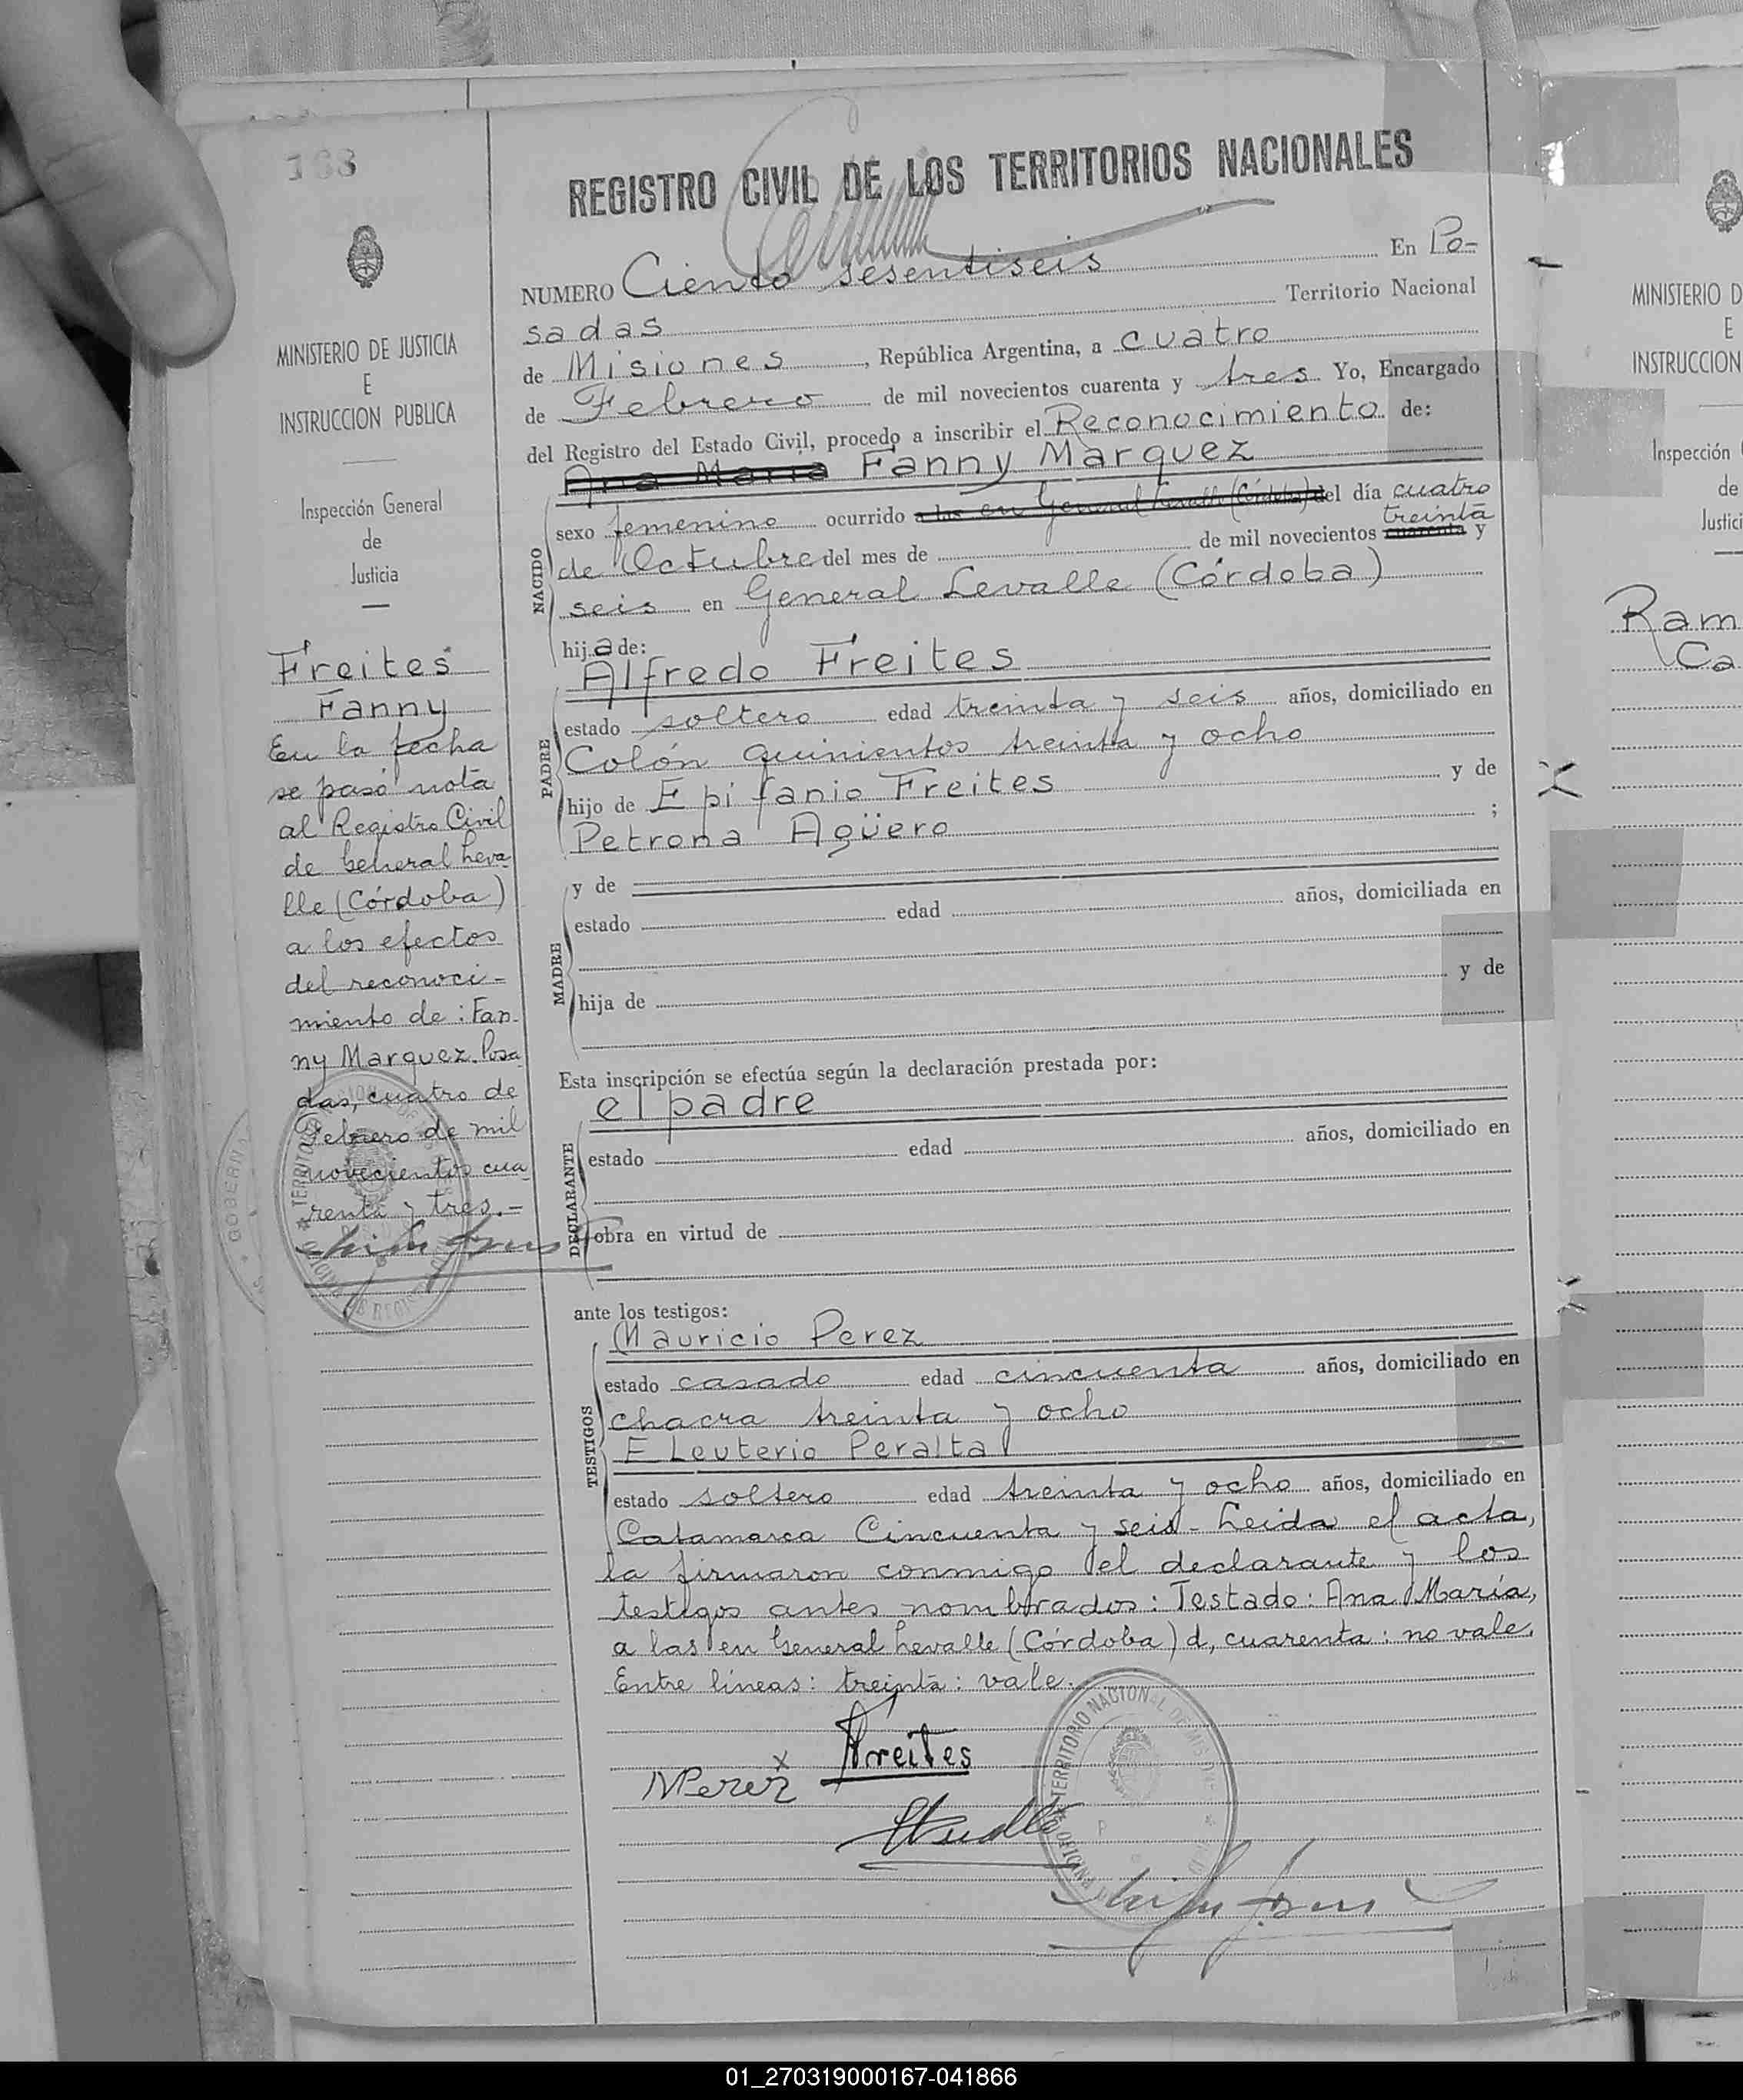 168
REGISTRO CIVIL DE LOS TERRITORIOS NACIONALES
NUMERO Ciento sesentiseis En Po-
sadas Territorio Nacional
de Misiones, República Argentina, a cuatro
de Febrero de mil novecientos cuarenta y tres Yo, Encargado
del Registro del Estado Civil, procedo a inscribir el Reconocimiento de:
Ana Maria Fanny Marquez
NACIDO
sexo femenino ocurrido a las en General Levalle (Córdoba) del día cuatro
treinta
de Octubre del mes de de mil novecientos cuarenta y
seis en General Levalle (Córdoba)
hija de:
Alfredo Freites
PADRE
estado soltero edad treinta y seis años, domiciliado en
Colón quinientos treinta y ocho
hijo de Epifanio Freites y de
Petrona Agüero ;
MADRE
y de
estado edad años, domiciliada en
hija de y de
Esta inscripción se efectúa según la declaración prestada por:
el padre
DECLARANTE
estado edad años, domiciliado en
obra en virtud de
ante los testigos:
Mauricio Perez
TESTIGOS
estado casado edad cincuenta años, domiciliado en
chacra treinta y ocho
ELeuterio Peralta
estado soltero edad treinta y ocho años, domiciliado en
Catamarca Cincuenta y seis - Leida el acta,
la firmaron conmigo el declarante y los
testigos antes nombrados: Testado: Ana María,
a las en General Levalle (Córdoba) d, cuarenta: no vale.
Entre líneas: treinta: vale.
Freites
MPerez
TERRITORIO NACIONAL DE MISIONES
MINISTERIO DE JUSTICIA
E
INSTRUCCION PUBLICA
Inspección General
de
Justicia
Freites
Fanny
En la fecha
se pasó nota
al Registro Civil
de General Leva
lle (Córdoba)
a los efectos
del reconoci-
miento de: Fan-
ny Marquez. Posa
das, cuatro de
Febrero de mil
novecientos cua
renta y tres.-
GOBERNA
MINISTERIO D
E
INSTRUCCION
Inspección
de
Justici
Ram
Ca
01_270319000167-041866